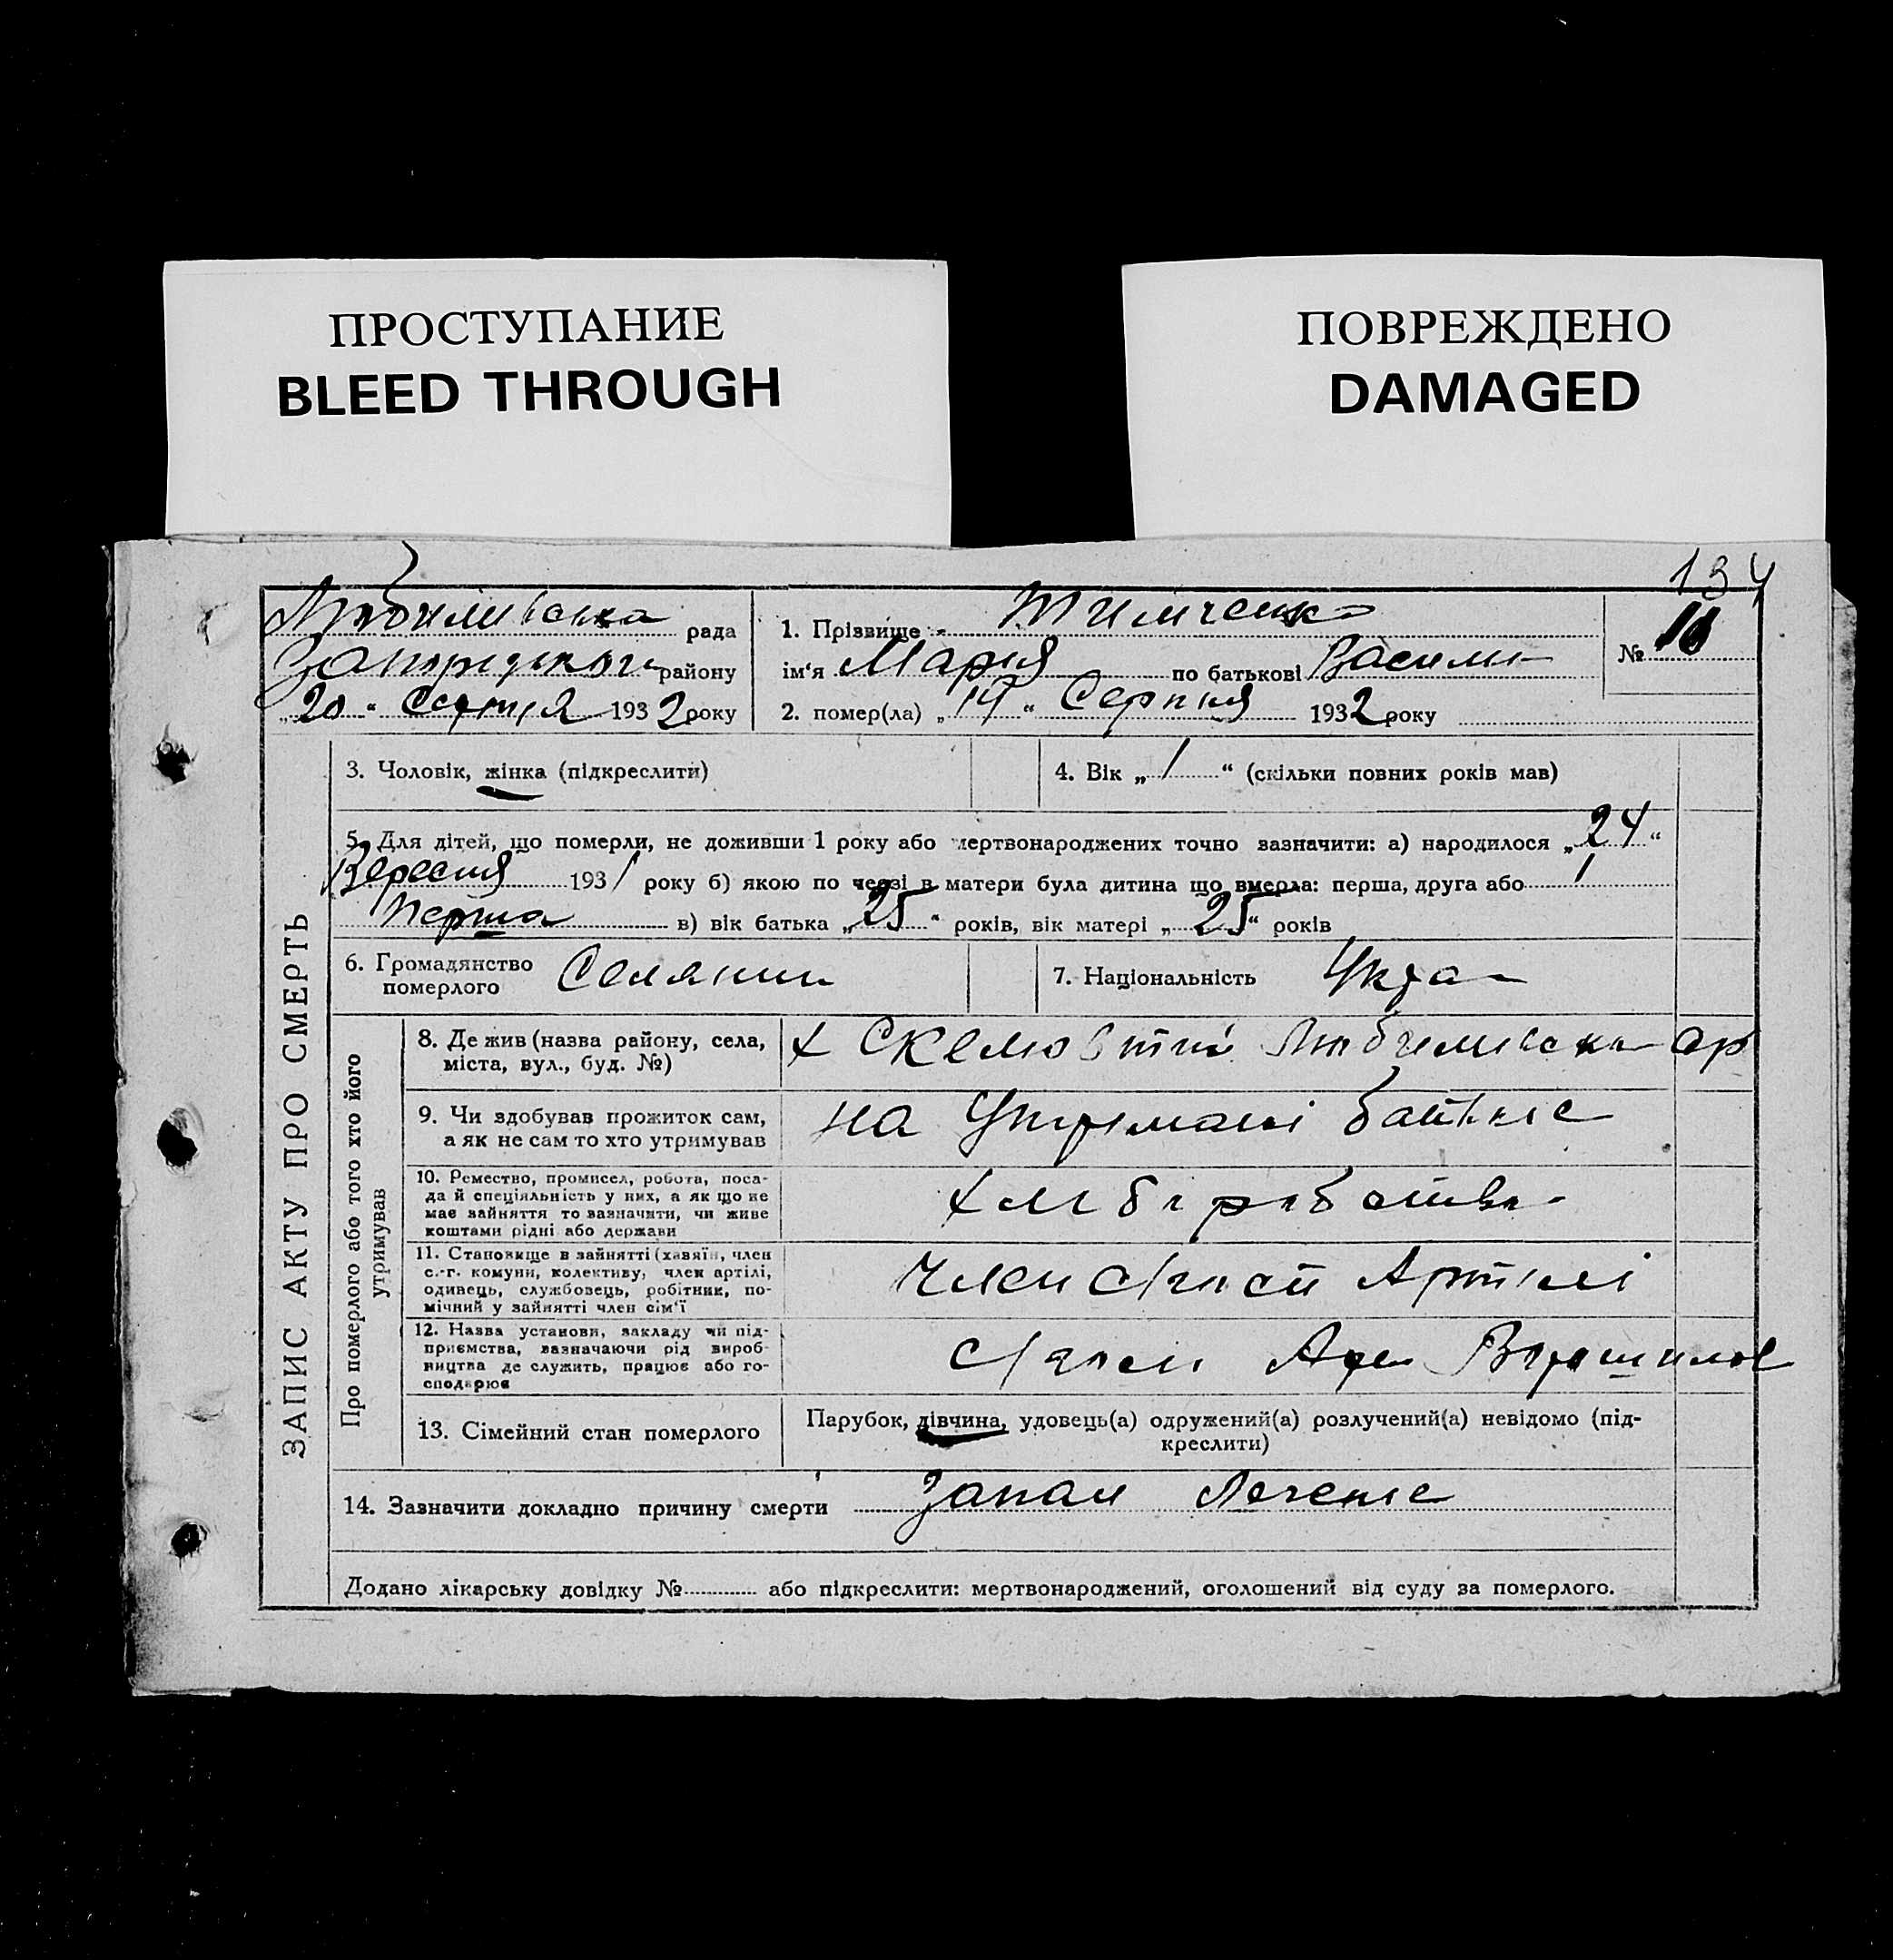 ПРОСТУПАНИЕ
BLEED THROUGH
ПОВРЕЖДЕНО
DAMAGED
134
рада
району
„20“ Серпня 1932 року
1. Прізвище Тимченко
ім‘я Мария по батькові Васили
2. помер(ла) „14“ Серпня 1932 року
№
ЗАПИС АКТУ ПРО СМЕРТЬ
3. Чоловік, жінка (підкреслити)
4. Вік „1“ (скільки повних років мав)
5. Для дітей, що померли, не доживши 1 року або мертвонароджених точно зазначити: а) народилося „24“
Вересня 1931 року б) якою по черзі в матери була дитина що вмерла: перша, друга або 1
Перша в) вік батька „25“ років, вік матері „25“ років
6. Громадянство
померлого
Селянин
7. Національність Укра
Про померлого або того хто його
утримував
8. Де жив (назва району, села,
міста, вул., буд. №)
9. Чи здобував прожиток сам,
а як не сам то хто утримував
на Утримані батька
10. Ремество, промисел, робота, поса-
да й спеціяльність у них, а як що не
має зайняття то зазначити, чи живе
коштами рідні або держави
11. Становище в зайнятті (хазяїн, член
с.-г. комуни, колективу, член артілі,
одинець, службовець, робітник, по-
мічний у зайнятті член сім‘ї
Член Артілі
12. Назва установи, закладу чи під-
приємства, зазначаючи рід вироб-
ництва де служить, працює або го-
сподарює
Ворошилов
13. Сімейний стан померлого
Парубок, дівчина, удовець(а) одружений(а) розлучений(а) невідомо (під-
креслити)
14. Зазначити докладно причину смерти Запал
Додано лікарську довідку № або підкреслити: мертвонароджений, оголошений від суду за померлого.